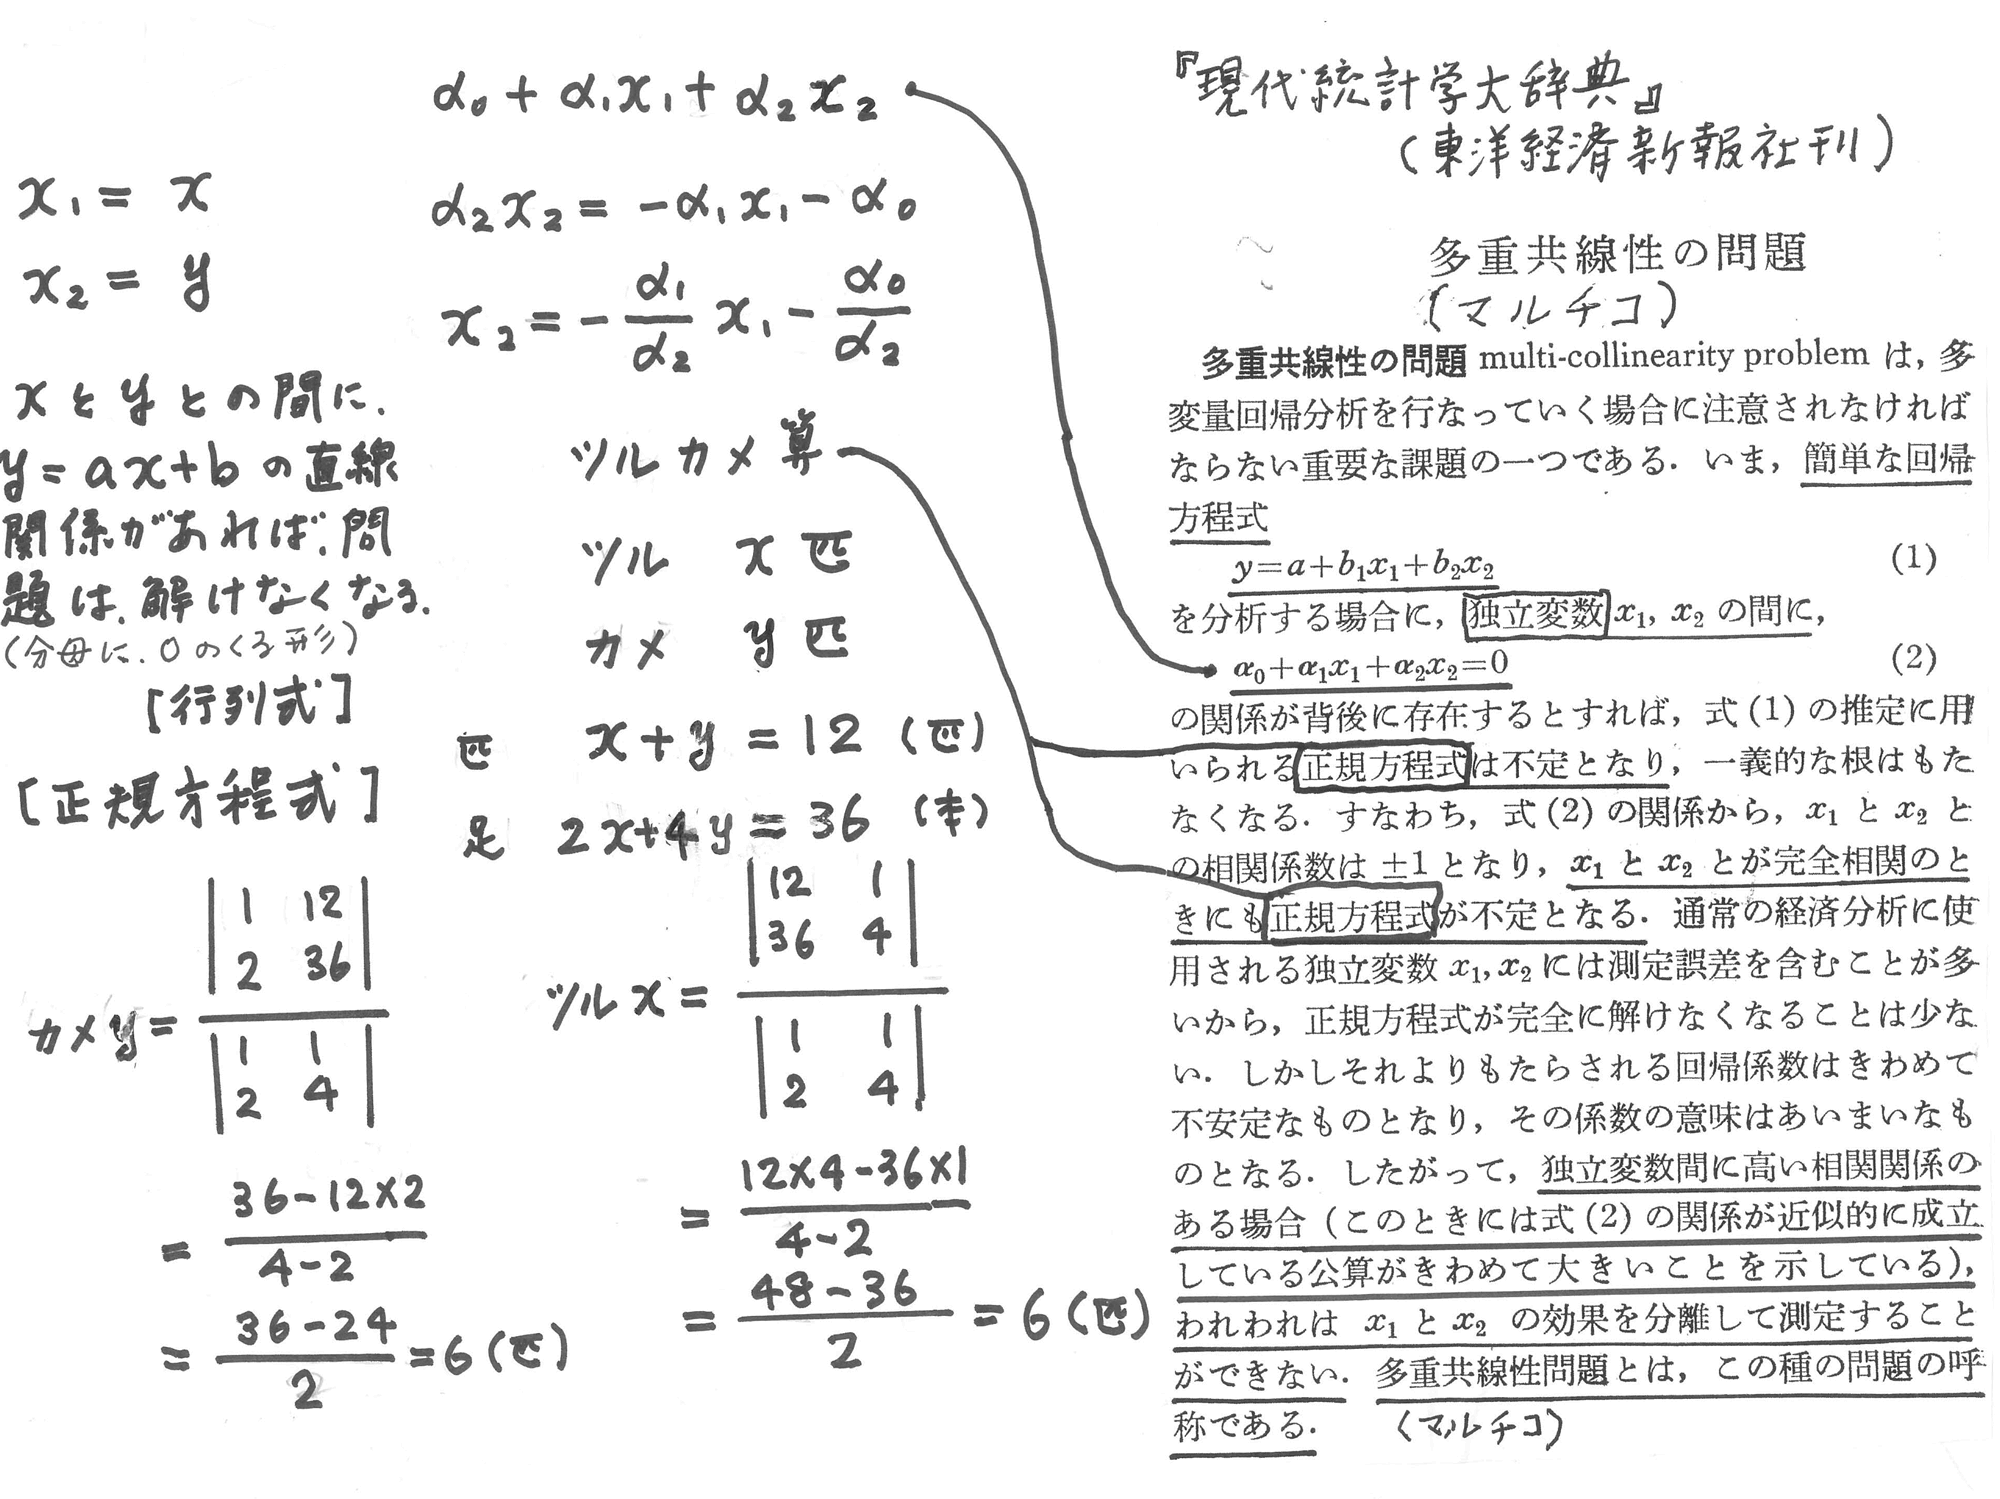 α₀ + α₁x₁ + α₂x₂
x₁ = x
x₂ = y
α₂x₂ = -α₁x₁ - α₀
x₂ = - α₁/α₂ x₁ - α₀/α₂
xとyとの間に、
y=ax+bの直線
関係があれば、問
題は、解けなくなる.
(分母に、0のくる形)
[行列式]
[正規方程式]
カメy = |1 12|
|2 36|
|1 1|
|2 4|
= 36-12×2 / 4-2
= 36-24 / 2 = 6(匹)
ツルカメ算
ツル x匹
カメ y匹
匹 x+y=12 (匹)
足 2x+4y=36 (本)
ツルx = |12 1|
|36 4|
|1 1|
|2 4|
= 12×4-36×1 / 4-2
= 48-36 / 2 = 6(匹)
『現代統計学大辞典』
(東洋経済新報社刊)
多重共線性の問題
(マルチコ)
多重共線性の問題 multi-collinearity problem は，多
変量回帰分析を行なっていく場合に注意されなければ
ならない重要な課題の一つである．いま，簡単な回帰
方程式
y=a+b₁x₁+b₂x₂ (1)
を分析する場合に，独立変数 x₁, x₂ の間に，
α₀+α₁x₁+α₂x₂=0 (2)
の関係が背後に存在するとすれば，式(1)の推定に用
いられる正規方程式は不定となり，一義的な根はもた
なくなる．すなわち，式(2)の関係から，x₁ と x₂ と
の相関係数は ±1 となり，x₁ と x₂ とが完全相関のと
きにも正規方程式が不定となる．通常の経済分析に使
用される独立変数 x₁, x₂ には測定誤差を含むことが多
いから，正規方程式が完全に解けなくなることは少な
い．しかしそれよりもたらされる回帰係数はきわめて
不安定なものとなり，その係数の意味はあいまいなも
のとなる．したがって，独立変数間に高い相関関係の
ある場合（このときには式(2)の関係が近似的に成立
している公算がきわめて大きいことを示している)，
われわれは x₁ と x₂ の効果を分離して測定すること
ができない．多重共線性問題とは，この種の問題の呼
称である． (マルチコ)